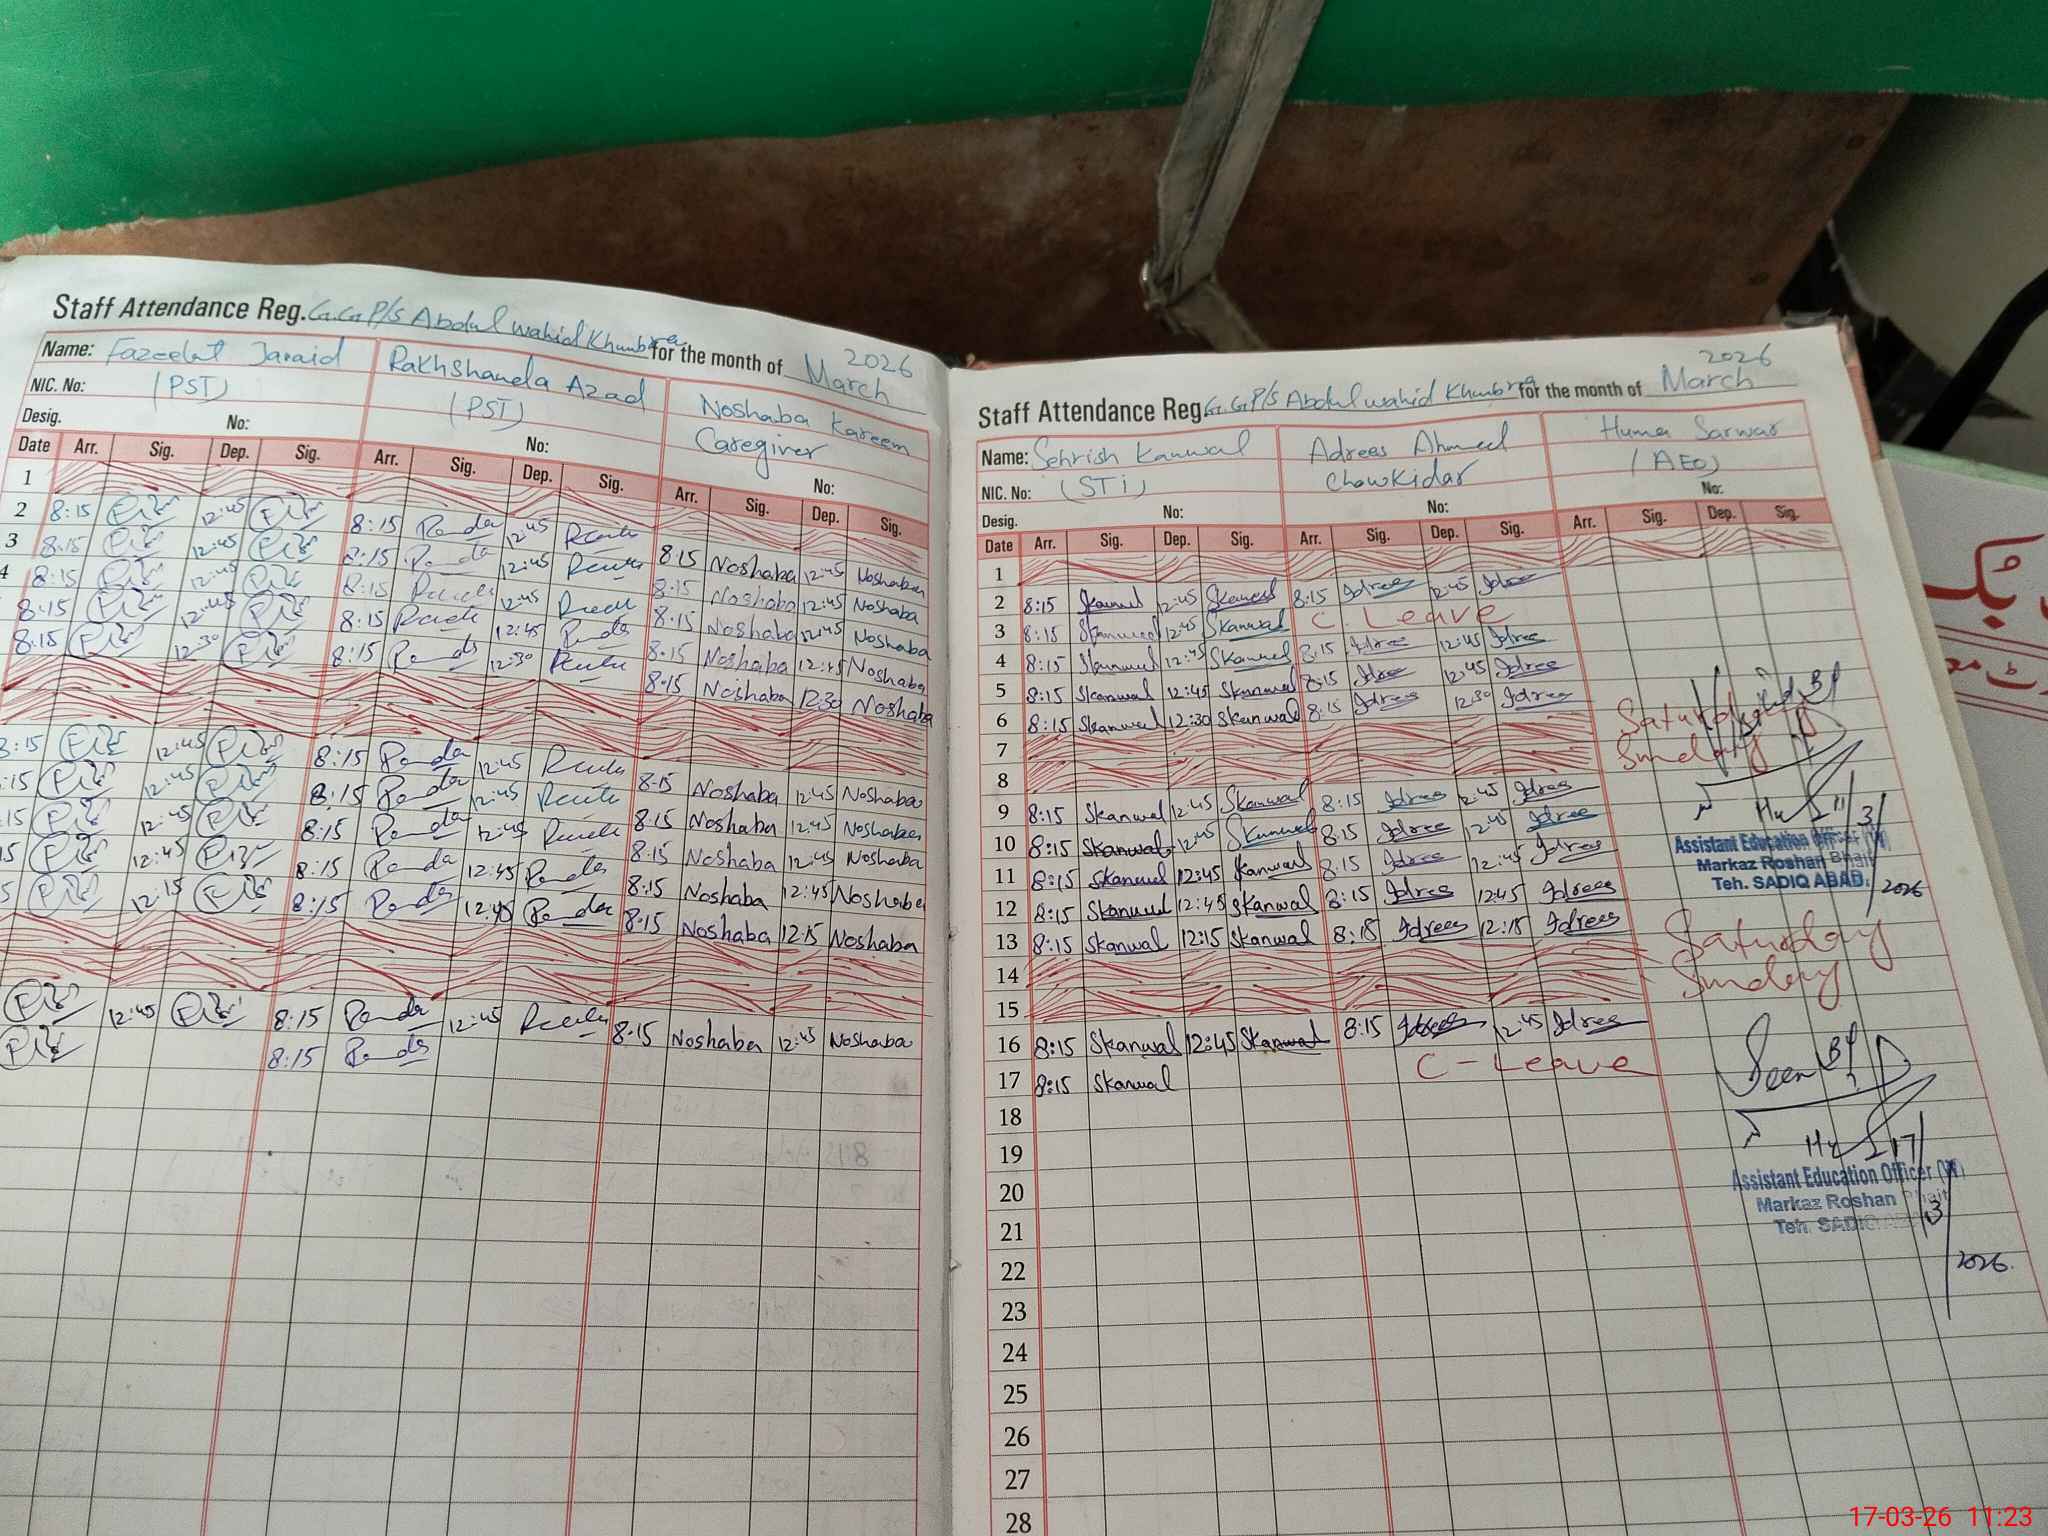 Staff Attendance Reg. G.G.P/S Abdul Wahid Khumbra for the month of March 2026
Name: Fazeelat Javaid Rakhshanda Azad Noshaba Kareem
NIC. No: (PST) (PST) Caregiver
Desig. No: No: No:
Date Arr. Sig. Dep. Sig. Arr. Sig. Dep. Sig. Arr. Sig. Dep. Sig.
1
2 8:15 12:45 8:15 12:45 8:15 Noshaba 12:45 Noshaba
3 8:15 12:45 8:15 12:45 8:15 Noshaba 12:45 Noshaba
4 8:15 12:45 8:15 12:45 8:15 Noshaba 12:45 Noshaba
8:15 12:45 8:15 12:45 8:15 Noshaba 12:45 Noshaba
8:15 12:30 8:15 12:30 8:15 Noshaba 12:30 Noshaba
8:15 12:45 8:15 12:45 8:15 Noshaba 12:45 Noshaba
:15 12:45 8:15 12:45 8:15 Noshaba 12:45 Noshaba
:15 12:45 8:15 12:45 8:15 Noshaba 12:45 Noshaba
5 12:45 8:15 12:45 8:15 Noshaba 12:45 Noshaba
5 12:15 8:15 8:15 Noshaba 12:15 Noshaba
12:45 8:15 12:45 8:15 Noshaba 12:45 Noshaba
8:15
Staff Attendance Reg. G.G.P/S Abdul Wahid Khumbra for the month of March 2026
Name: Sehrish Kanwal Adrees Ahmed Huma Sarwar
NIC. No: (STI) Chowkidar (AEO)
Desig. No: No: No:
Date Arr. Sig. Dep. Sig. Arr. Sig. Dep. Sig. Arr. Sig. Dep. Sig.
1
2 8:15 Skanwal 12:45 Skanwal 8:15 Idrees 12:45 Idrees
3 8:15 Skanwal 12:45 Skanwal C. Leave
4 8:15 Skanwal 12:45 Skanwal 8:15 Idrees 12:45 Idrees
5 8:15 Skanwal 12:45 Skanwal 8:15 Idrees 12:45 Idrees
6 8:15 Skanwal 12:30 Skanwal 8:15 Idrees 12:30 Idrees
7 Saturday
8 Sunday
9 8:15 Skanwal 12:45 Skanwal 8:15 Idrees 12:45 Idrees
10 8:15 Skanwal 12:45 Skanwal 8:15 Idrees 12:45 Idrees
11 8:15 Skanwal 12:45 Skanwal 8:15 Idrees 12:45 Idrees
12 8:15 Skanwal 12:45 Skanwal 8:15 Idrees 12:45 Idrees
13 8:15 Skanwal 12:15 Skanwal 8:15 Idrees 12:15 Idrees
14 Saturday
15 Sunday
16 8:15 Skanwal 12:45 Skanwal 8:15 Idrees 12:45 Idrees
17 8:15 Skanwal C-Leave
18
19
20
21
22
23
24
25
26
27
28
11/3/2026
Assistant Education Officer (W)
Markaz Roshan Bhait
Teh. SADIQ ABAD.
Seen By
17/3/2026.
Assistant Education Officer (W)
Markaz Roshan Bhait
Teh. SADIQ ABAD
17-03-26 11:23